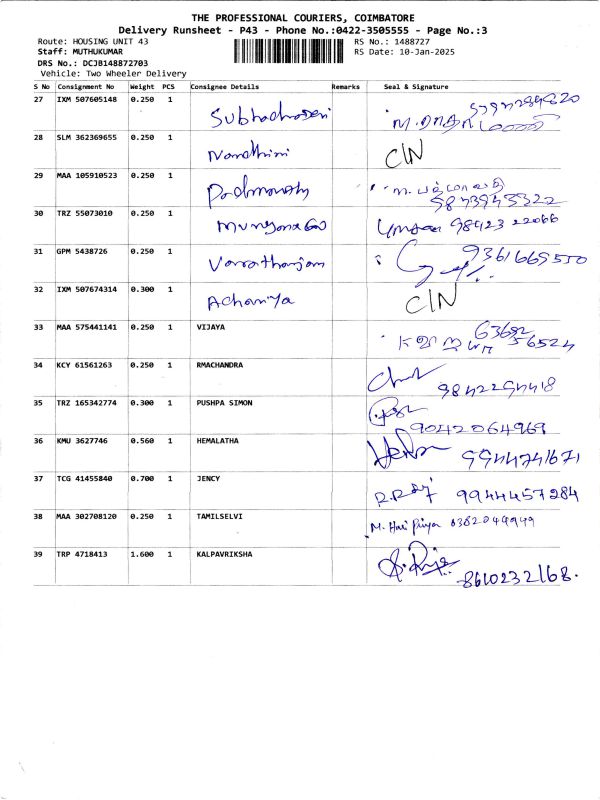 THE PROFESSIONAL COURIERS, COIMBATORE
Delivery Runsheet - P43 - Phone No.:0422-3505555 - Page No.:3
Route: HOUSING UNIT 43 RS No.: 1488727
Staff: MUTHUKUMAR RS Date: 10-Jan-2025
DRS No.: DCJB148872703
Vehicle: Two Wheeler Delivery
S No Consignment No Weight PCS Consignee Details Remarks Seal & Signature
27 IXM 507605148 0.250 1
28 SLM 362369655 0.250 1 Nandhini CIN
29 MAA 105910523 0.250 1 Padmavathy
30 TRZ 55073010 0.250 1 98423 22066
31 GPM 5438726 0.250 1 Varatharajam 9361669550
32 IXM 507674314 0.300 1 CIN
33 MAA 575441141 0.250 1 VIJAYA 63692 56524
34 KCY 61561263 0.250 1 RMACHANDRA 9842294418
35 TRZ 165342774 0.300 1 PUSHPA SIMON 9042064969
36 KMU 3627746 0.560 1 HEMALATHA 9944741671
37 TCG 41455840 0.700 1 JENCY 9944457284
38 MAA 302708120 0.250 1 TAMILSELVI M. Hari Priya 6382049949
39 TRP 4718413 1.600 1 KALPAVRIKSHA 8610232168.